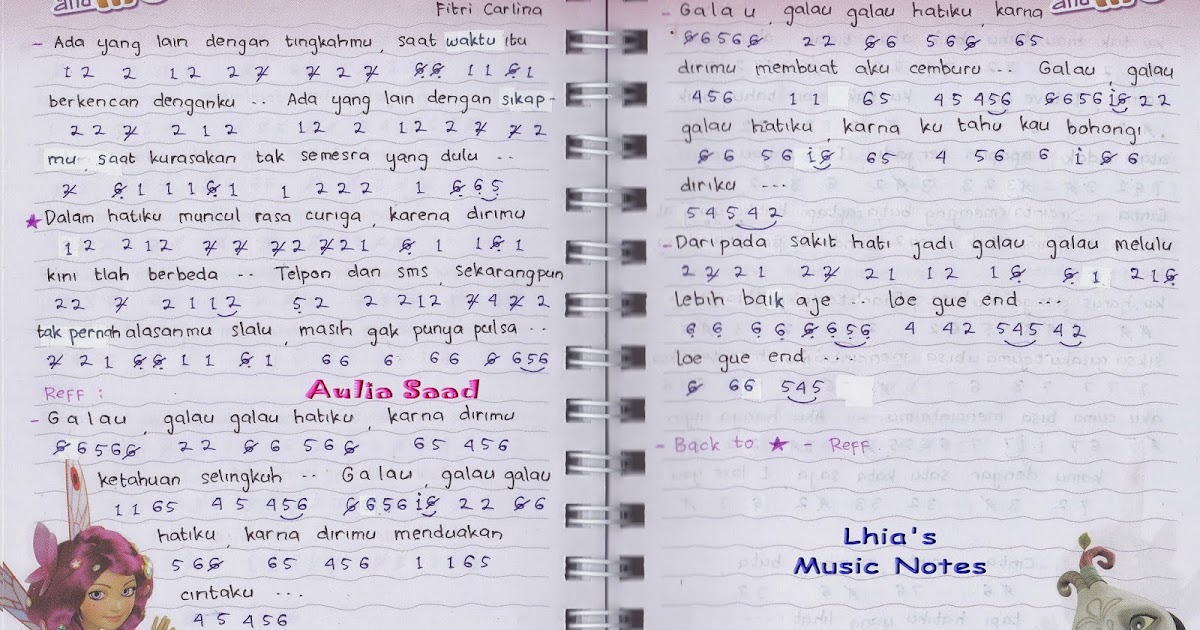 and
Fitri Carlina
- Ada yang lain dengan tingkahmu, saat waktu itu
1 2 2 1 2 2 7̸ 7̸ 2 7̸ 6̸ 6̸ 1 1 6̸ 1
berkencan denganku .. Ada yang lain dengan sikap-
2 2 7̸ 2 1 2 1 2 2 1 2 2 7̸ 7̸ 2
mu, saat kurasakan tak semesra yang dulu ..
7̸ 6̸ 1 1 1 6̸ 1 1 2 2 2 1 6̸ 6 5
★ Dalam hatiku muncul rasa curiga, karena dirimu
1 2 2 1 2 7̸ 7̸ 7̸ 2 7̸ 2 1 6̸ 1 1 6̸ 1
kini tlah berbeda .. Telpon dan sms, sekarangpun
2 2 7̸ 2 1 1 2 5 2 2 2 1 2 7̸ 4 7̸ 2
tak pernah alasanmu slalu, masih gak punya pulsa ..
7̸ 2 1 6̸ 6̸ 1 1 6̸ 1 6 6 6 6 6 6̸ 6 5 6
Reff :
Aulia Saad
- Galau, galau galau hatiku, karna dirimu
6̸ 6 5 6 6̸ 2 2 6̸ 6 5 6 6̸ 6 5 4 5 6
ketahuan selingkuh .. Galau, galau galau
1 1 6 5 4 5 4 5 6 6̸ 6 5 6 i 6̸ 2 2 6̸ 6
hatiku, karna dirimu menduakan
5 6 6̸ 6 5 4 5 6 1 1 6 5
cintaku ...
4 5 4 5 6
and
- Galau, galau galau hatiku, karna
6̸ 6 5 6 6̸ 2 2 6̸ 6 5 6 6̸ 6 5
dirimu membuat aku cemburu .. Galau, galau
4 5 6 1 1 6 5 4 5 4 5 6 6̸ 6 5 6 i 6̸ 2 2
galau hatiku karna ku tahu kau bohongi
6̸ 6 5 6 i 6̸ 6 5 4 5 6 6 i 6̸ 6
diriku ...
5 4 5 4 2
- Daripada sakit hati jadi galau galau melulu
2 7̸ 2 1 2 7̸ 2 1 1 2 1 6̸ 6̸ 1 2 1 6̸
lebih baik aje ... loe gue end ...
6̸ 6 6̸ 6̸ 6̸ 6 5 6 4 4 2 5 4 5 4 2
loe gue end ....
6̸ 6 6 5 4 5
- Back to ★ - Reff.
Lhia's
Music Notes